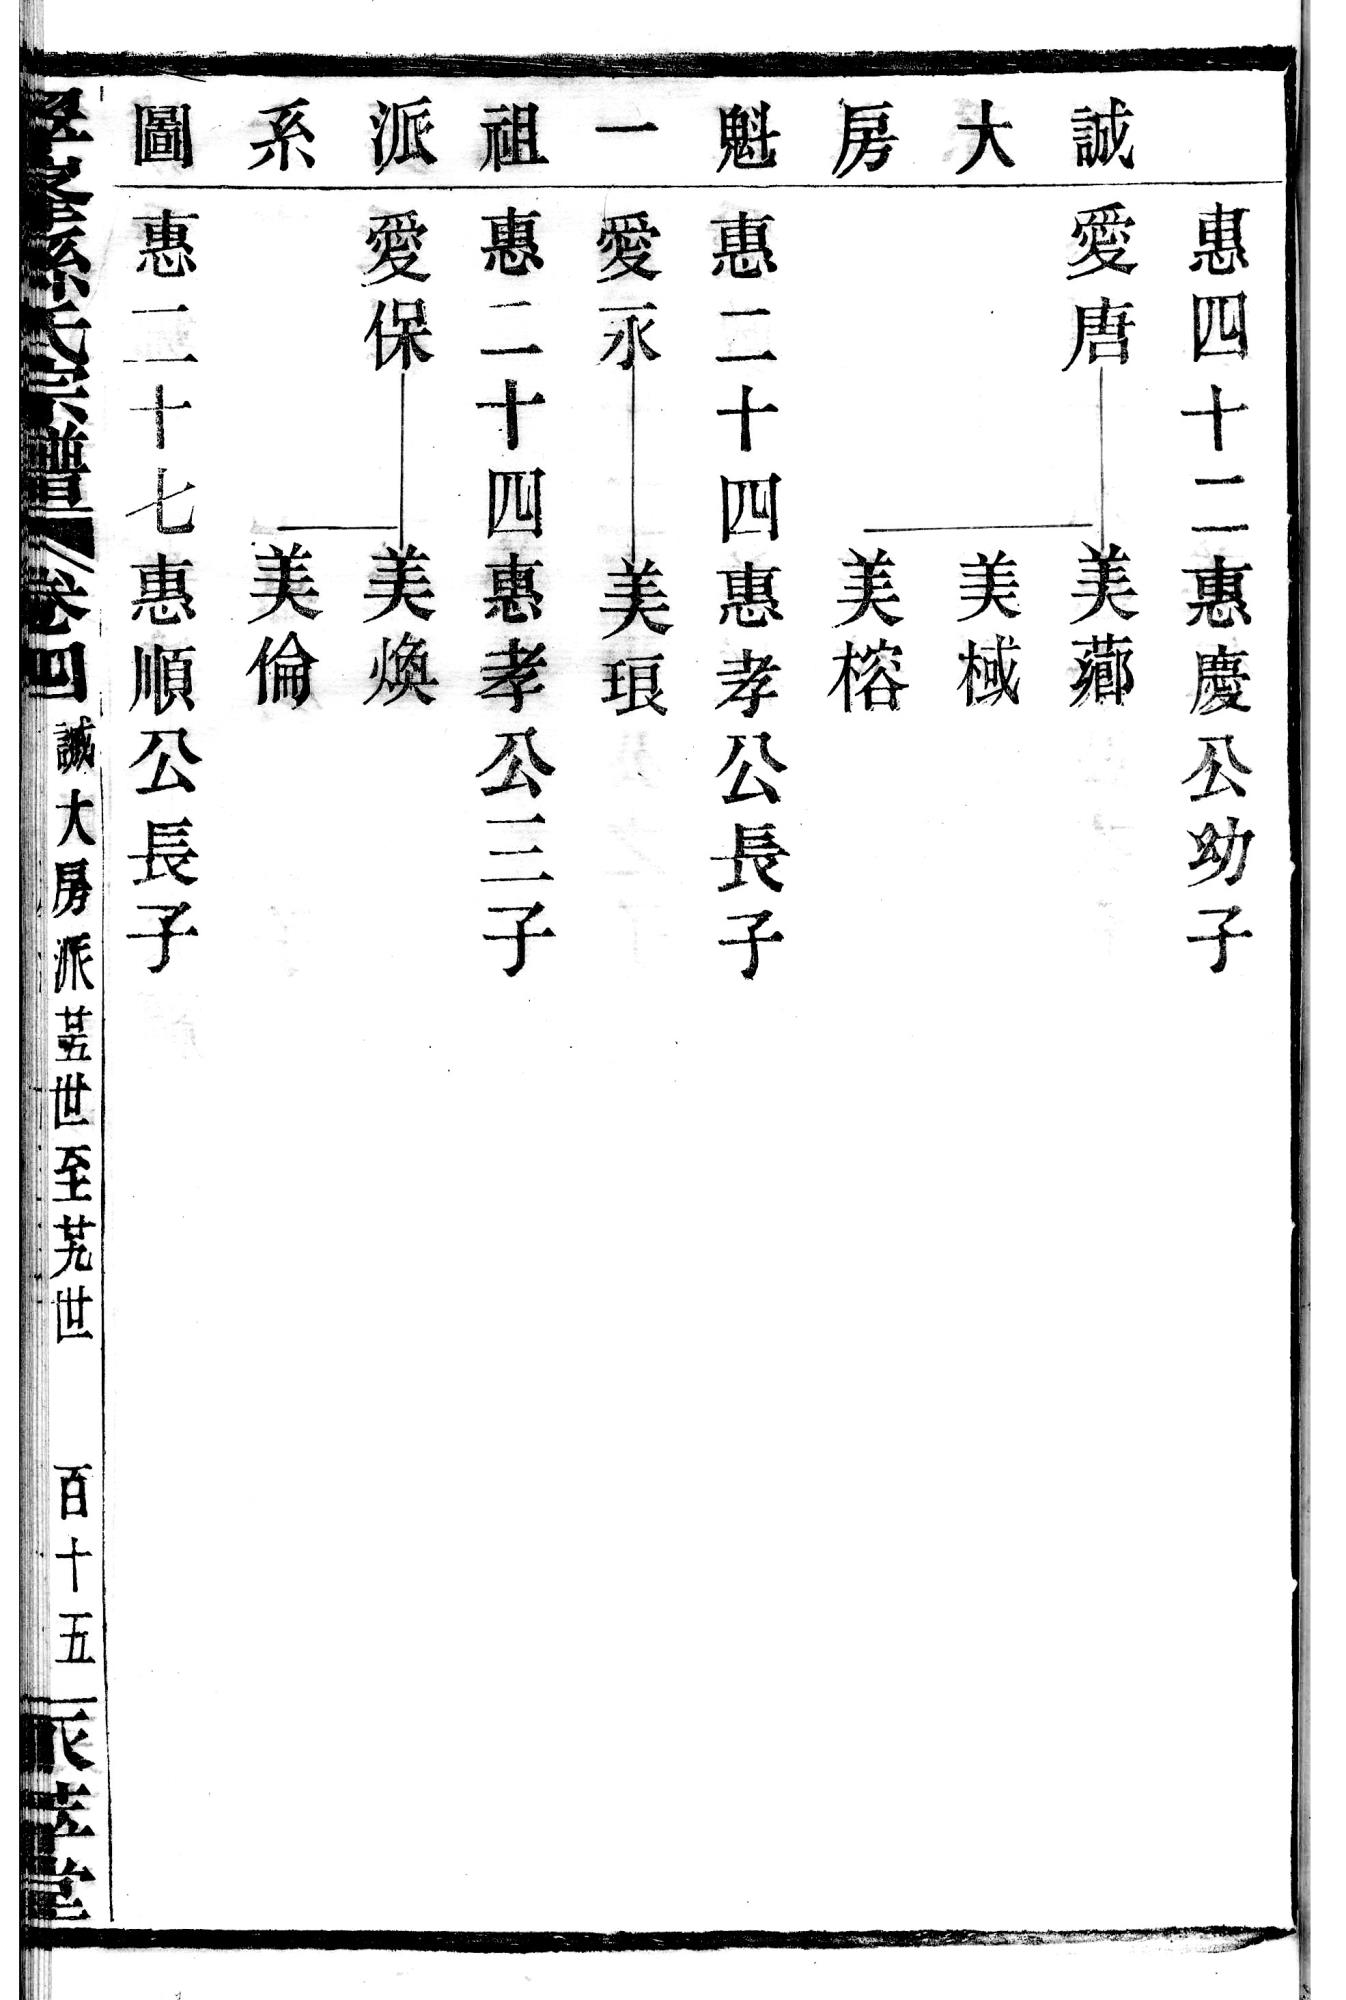 誠大房魁一祖派系圖
惠四十二惠慶公幼子
愛唐 美薌
美棫
美榕
惠二十四惠孝公長子
愛永 美琅
惠二十四惠孝公三子
愛保 美煥
美倫
惠二十七惠順公長子
氏宗譜 卷四 誠大房派 苎世至艽世 百十五 堂